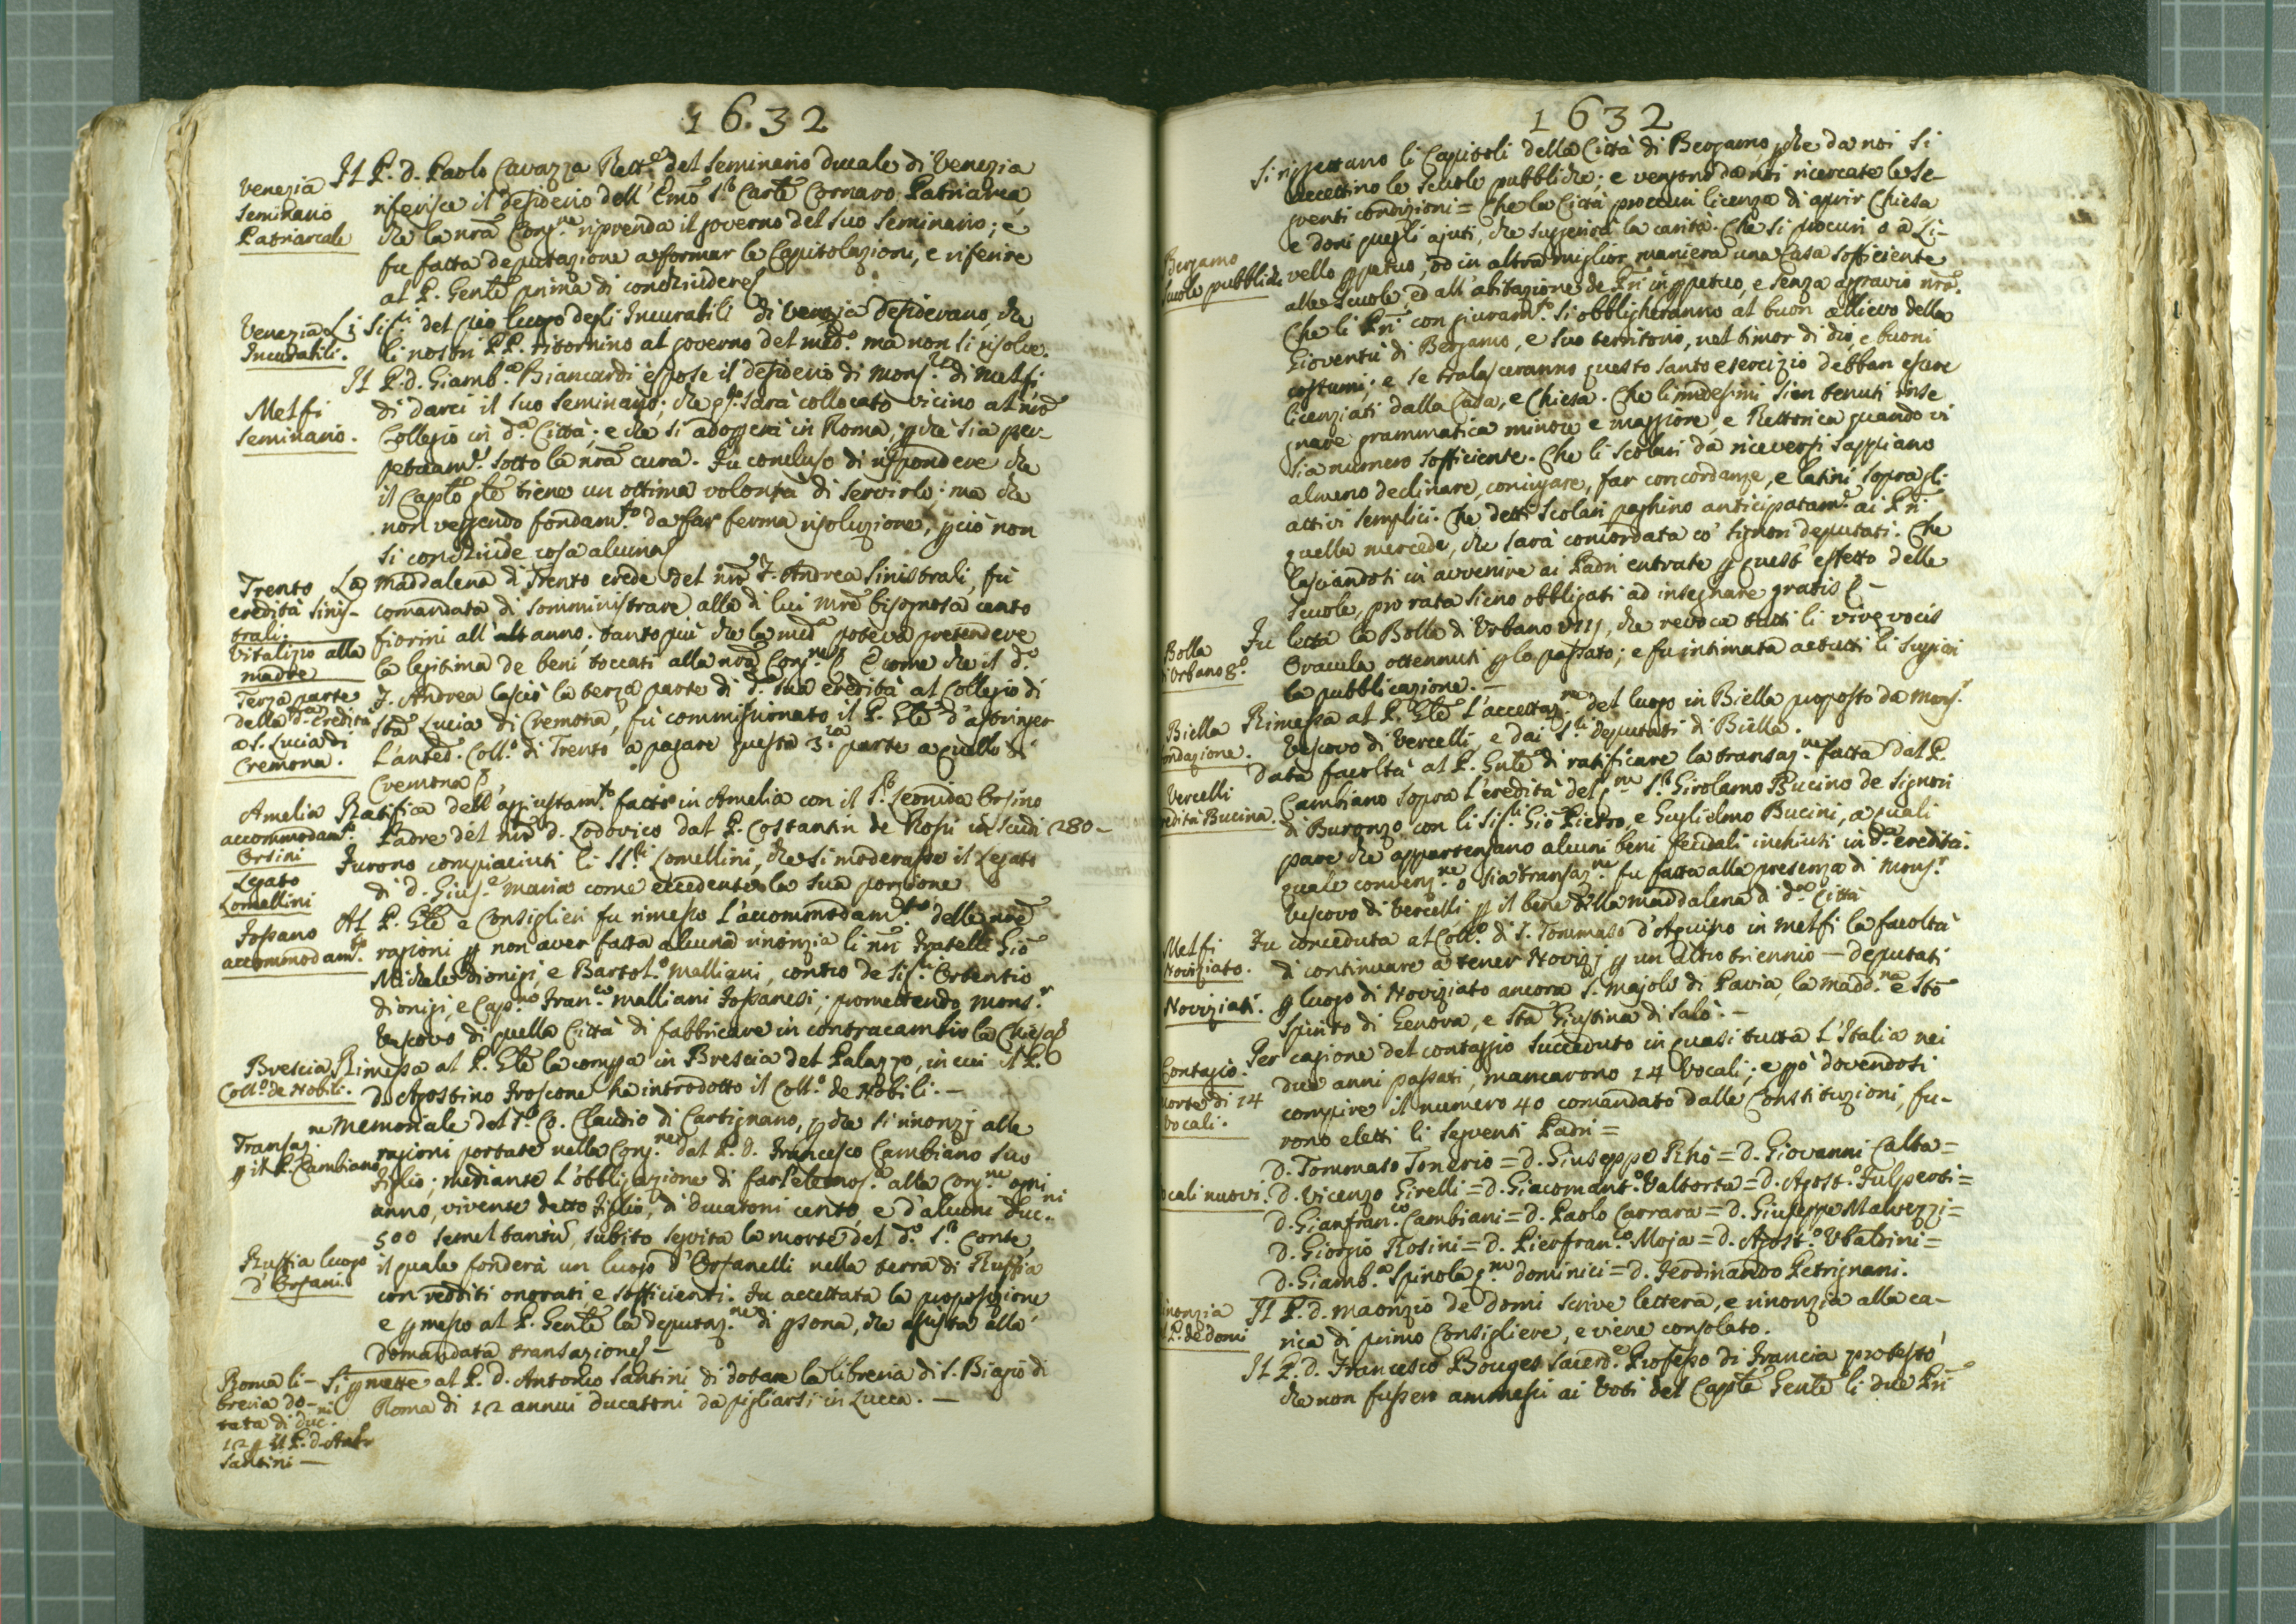 1632
Venezia
Seminario
Patriarcale
Il P. D. Paolo Cavazza Rett.e del Seminario ducale di Venezia
riferisce il desiderio dell' Emo S.r Carle Cornaro Patriarca
che la nrã Cong.ne riprenda il governo del suo Seminario; e
fu fatta deputazione a formar le Capitolazioni, e riferire
al P. Genle prima di conchiudere
Venezia
Incurabili.
Li Sig.ri del pio luogo degli Incurabili di Venezia desiderano, che
li nostri PP. ritornino al governo del med.o ma non si risolve.
Melfi
Seminario.
Il P. D. Giamb.a Biancardi espose il desiderio di Mons.re di Melfi
di darci il suo Seminario; che pto sarà collocato vicino al nro
Collegio in d.a Città; e che si adoprerà in Roma, pchè sia per-
petuam.e sotto la nrã cura. Fu concluso di rispondere che
il Caplo Gle tiene un ottima volontà di servirlo; ma che
non vegendo fondam.to da far ferma risoluzione, pciò non
si conchiude cosa alcuna
Trento
eredità Sinis-
trali.
Vitalizio alla
madre
La Maddalena di Trento erede del nro F. Andrea Sinistrali, fu
comandata di somministrare alla di lui mrẽ bisognosa cento
fiorini all' alt anno; tanto più che la med.a poteva pretendere
la legitima de beni toccati alla nrã Cong.ne E come che il d.o
Terza parte
della d.a eredità
a S. Lucia di
Cremona.
F. Andrea lasciò la terza parte di d.a sua eredità al Collegio di
Sta Lucia di Cremona, fu commissionato il P. Gle d'astringer
l'anted.o Coll.o di Trento a pagare questa 3.za parte a quello di
Cremona
Amelia
accommodam.to
Orsini
Ratifica dell' aggiustam.to fatto in Amelia con il S.r Leonida Orsino
Padre del nro D. Lodovico dal P. Costantin de Rossi in scudi 280-
Legato
Lomellini
Furono compiaciuti li SS.ri Lomellini, che si moderasse il Legato
di D. Gius.e Maria come eccedente la sua porzione
Fossano
accommodam.to
Al P. Gle e Consiglieri fu rimesso l'accommodam.to delle nre
ragioni p non aver fatta alcuna rinonzia li nri Fratelli Gio
Michele Dionigi, e Bartol.o Malliani, contro de Sig.ri Ortentio
Dionigi, e Cap.no Fran.co Malliani Fossanesi; promettendo Mons.r
Vescovo di quella Città di fabbricare in contracambio la Chiesa
Brescia
Coll.o de Nobili.
Rimessa al P. Gle la compra in Brescia del Palazzo, in cui il P.
D. Agostino Froscone ha introdotto il Coll.o de Nobili.-
Transaz.ne
p il P. Cambiano
Memoriale del S.r Co. Claudio di Cartignano, p che si rinonzj alle
ragioni portate nella Cong.ne dal P. D. Francesco Cambiano suo
Figlio; mediante l'obbligazione di far l'elemos.a alla Cong.ne ogni
anno, vivente detto Figlio, di ducatoni cento, e d'alcuni duc.ni
500 semel tantũ, subito seguita la morte del d.o S.r Conte,
Ruffia luogo
d'Orfani
il quale fonderà un luogo d'Orfanelli nella terra di Ruffia
con redditi onorati, e sofficienti. Fu accettata la proposizione
e pmesso al P. Genle la deputaz.ne di psona, che assista alla
domandata transazione -
Roma li-
breria do-
tata di duc.ni
12 p il P. D. Ant.o
Santini -
Si pmette al P. D. Antonio Santini di dotare la libreria di S. Biagio di
Roma di 12 annui ducatoni da pigliarsi in Lucca. -
1632
Bergamo
Scuole pubbliche
Si riggettano li Capitoli della Città di Bergamo, pche da noi si
accettino le scuole pubbliche; e vengono da noi ricercate le se-
guenti condizioni = Che la Città proccuri licenza di aprir Chiesa
e doni quegli ajuti, che suggerirà la carità. Che si procuri o a Li-
vello ppetuo, od in altra miglior maniera una Casa sofficiente
alle scuole, ed all' abitazione de Pri in ppetuo, e senza aggravio nro.
Che li Pri con giuram.to si obbligheranno al buon allievo della
Gioventù di Bergamo, e suo territorio, nel timor di dio, e buoni
costumi; e se tralasceranno questo santo esercizio debban essere
licenziati dalla Casa, e Chiesa. Che li medesimi sien tenuti inse
gnare grammatica minore e maggiore, e Rettorica quando vi
sia numero sofficiente. Che li scolari da riceversi sappiano
almeno declinare, coniugare, far concordanze, e latini sopra gli
attivi semplici. Che detti scolari paghino anticipatam.e ai Pri
quella mercede, che sarà concordata co' Signori deputati. Che
lasciandoti in avvenire ai Padri entrate p quest' effetto delle
Scuole, pro rata sieno obbligati ad insegnare gratis -
Bolla
d'Urbano 8.o
Fu letta la Bolla di Urbano VIIJ, che revoca tutti li vive vocis
Oracula ottennuti p lo passato; e fu intimata a tutti li Suppiori
la pubblicazione. -
Biella
fondazione.
Rimessa al P. Gle l'accettaz.ne del luogo in Biella proposto da Mons.r
Vescovo di Vercelli, e dai S.ri deputati di Biella.
Vercelli
eredità Bucina.
Data facoltà al P. Gnle di ratificare la transaz.ne fatta dal P.
Cambiano sopra l'eredità del q.m S.r Girolamo Bucino de Signori
di Buronzo con li Sig.ri Gio Pietro, e Guglielmo Bucini, a quali
pare che appartengano alcuni beni feudali inchiusi in d.a eredità.
quale convenz.ne o sia transaz.ne fu fatta alla presenza di Mons.r
Vescovo di Vercelli p il bene della Maddalena di d.a Città
Melfi
Noviziato.
Fu conceduta al Coll.o di S. Tommaso d'Aquino in Melfi la facoltà
di continuare a tener Novizj p un altro triennio - deputati
Noviziati.
p luogo di Noviziato ancora S. Majolo di Pavia, la Madd.na e Sto
Spirito di Genova, e Sta Giustina di Salò. -
Contagio.
morte di 14
Vocali.
Per cagione del contaggio succeduto in quasi tutta l'Italia nei
due anni passati, mancarono 14 Vocali; e pò dovendosi
compire il numero 40 comandato dalle Constituzioni, fu-
rono eletti li seguenti Padri =
D. Tommaso Tonerio = D. Giuseppe Rhò = D. Giovanni Calta =
Vocali nuovi.
D. Vicenzo Girelli = D. Giacomant.o Valtorta = D. Agost.o Fulperti =
D. Gianfran.co Cambiani = D. Paolo Carrara = D. Giuseppe Malvezzi =
D. Giorgio Rosini = D. Pierfran.co Moja = D. Agost.o Ubaldini =
D. Giamb.a Spinola q.m Dominici = D. Ferdinando Petrignani.
rinonzia
del P. de Domi
Il P. D. Maorizio de Domi scrive lettera, e rinonzia alla ca-
rica di primo Consigliere, e viene consolato.
Il P. D. Francesco Bouges Sacerd.e Professo di Francia protestò
che non fussero ammessi ai Voti del Caple Genle li due Pri